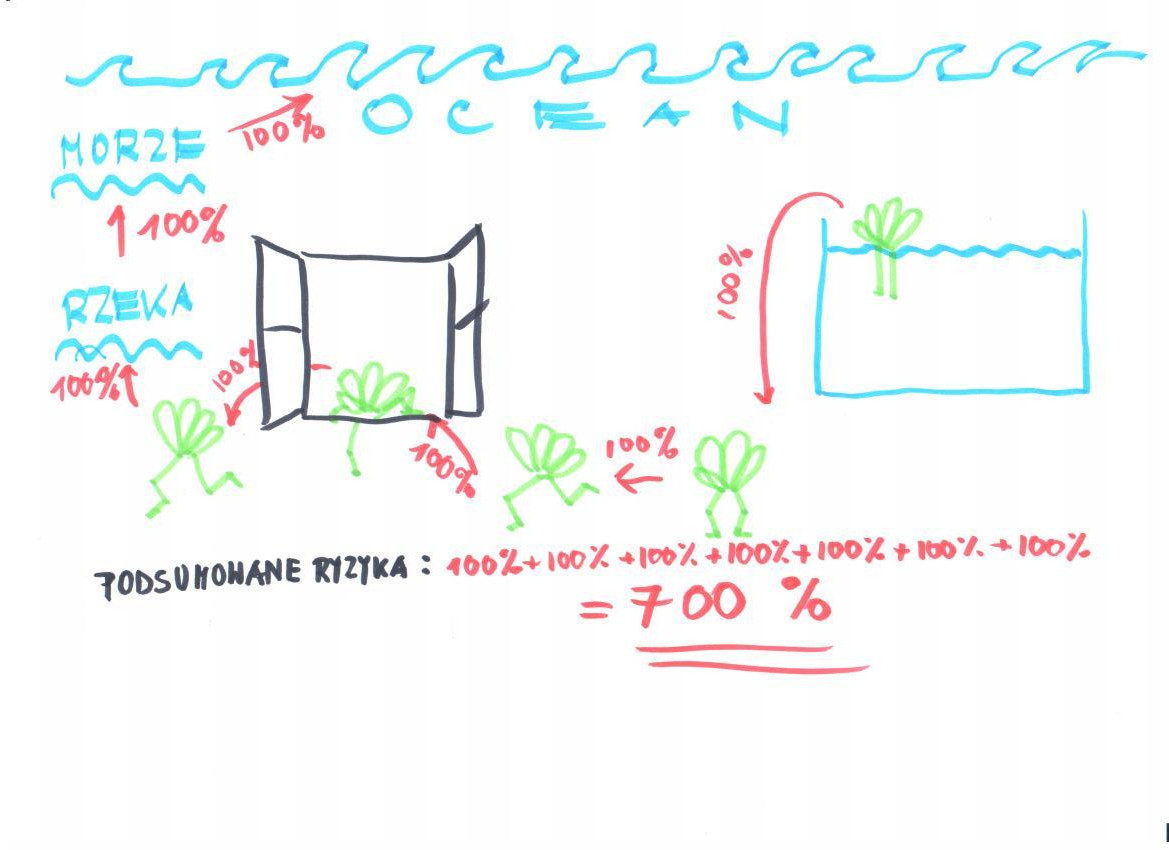 OCEAN
100%
MORZE
100%
RZEKA
100%
100%
100%
100%
100%
PODSUMOWANE RYZYKA: 100%+100%+100%+100%+100%+100%+100%
=700 %